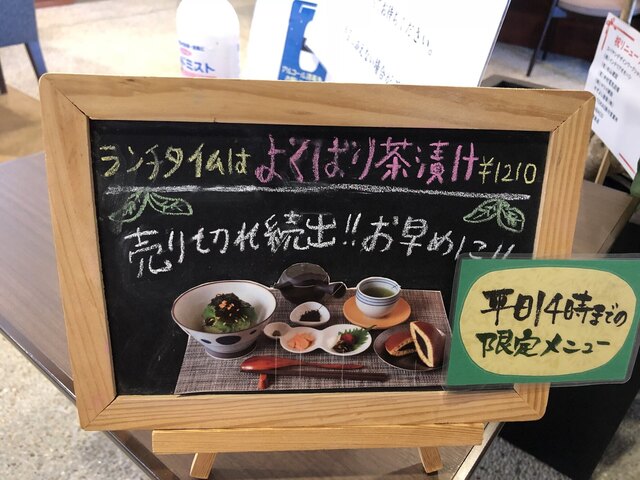 ミスト
ランチタイムは よくばり茶漬け ¥1210
売り切れ続出!! お早めに!!
平日14時までの
限定メニュー